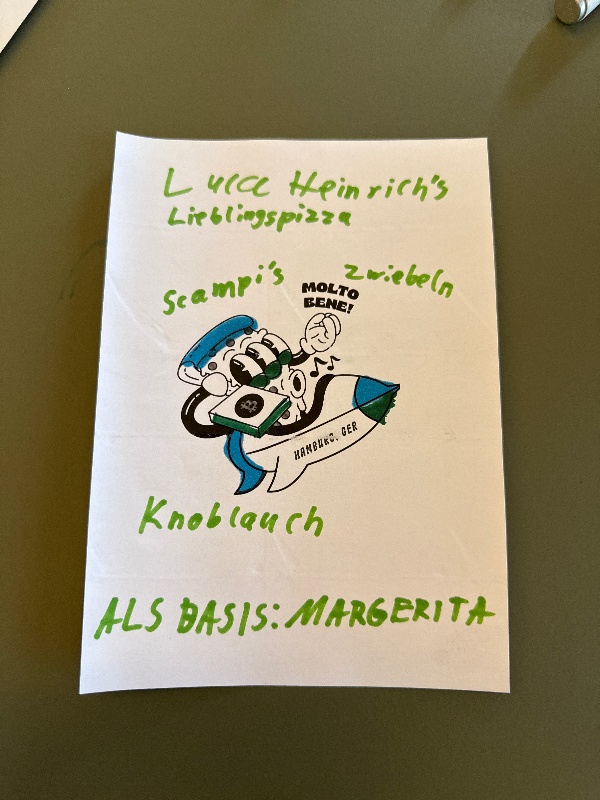 Luca Heinrich's
Lieblingspizza
Scampi's
Zwiebeln
MOLTO
BENE!
HAMBURG, GER
Knoblauch
ALS BASIS: MARGERITA